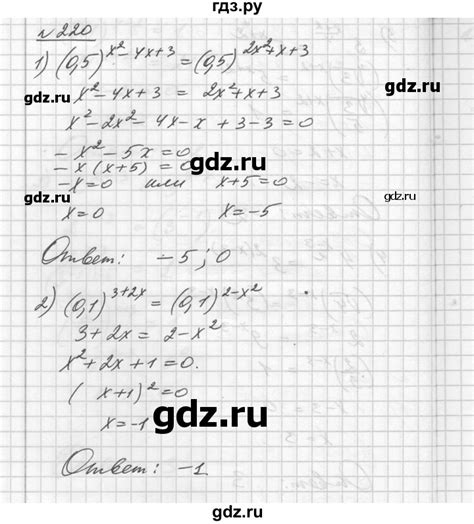 гдз.ру
№ 220
1) (0,5)^(x²-4x+3) = (0,5)^(2x²+x+3)
gdz.ru gdz.ru
x²-4x+3 = 2x²+x+3
x²-2x²-4x-x+3-3=0
-x²-5x=0
gdz.ru
-x(x+5)=0
-x=0 или x+5=0
gdz.ru
x=0 x=-5
Ответ: -5; 0
2) (0,1)^(3+2x) = (0,1)^(2-x²)
gdz.ru gdz.ru
3+2x = 2-x²
x²+2x+1=0.
(x+1)²=0
gdz.ru
x=-1
gdz.ru
Ответ: -1
gdz.ru
gdz.ru